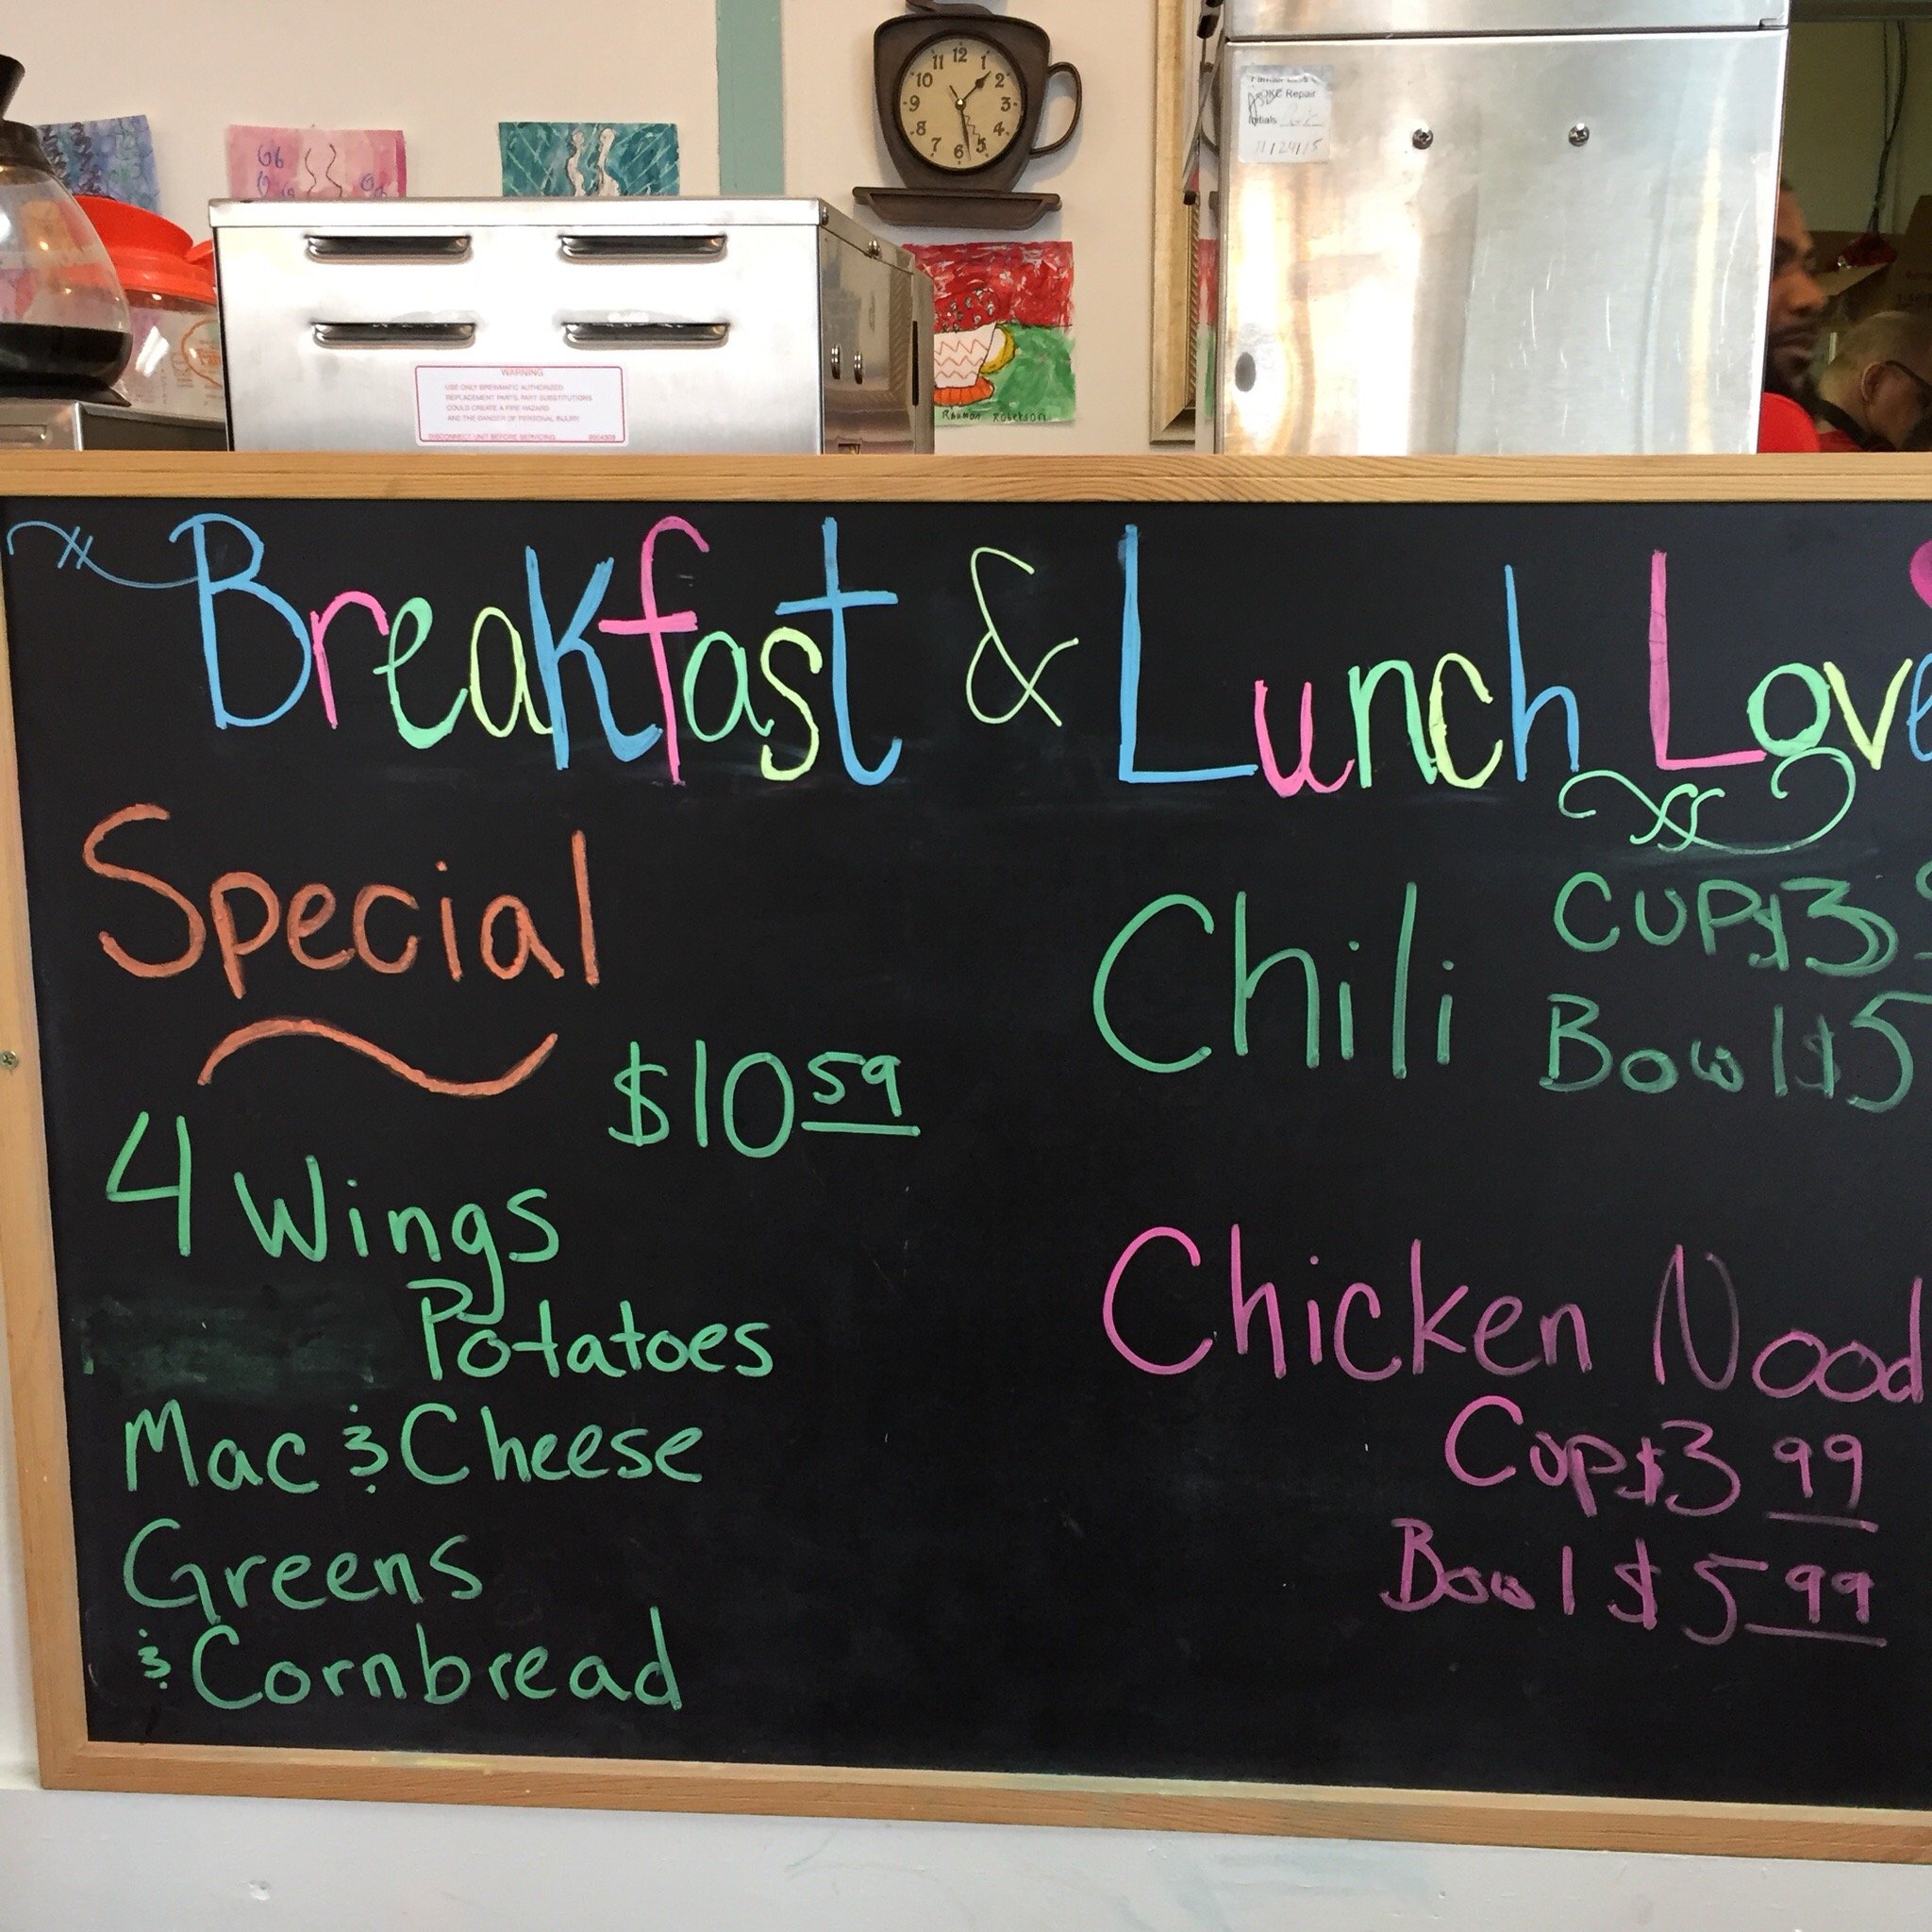 12
11 1
10 2
9 3
8 4
7 6 5
OKC Repair
Initials
11/24/15
WARNING
USE ONLY BREWMATIC AUTHORIZED
REPLACEMENT PARTS. PART SUBSTITUTIONS
COULD CREATE A FIRE HAZARD
AND THE DANGER OF PERSONAL INJURY
DISCONNECT UNIT BEFORE SERVICING
Breakfast & Lunch Love
Special
$10 59
4 Wings
Potatoes
Mac & Cheese
Greens
& Cornbread
Chili
Cup $3
Bowl $5
Chicken Nood
Cup $3 99
Bowl $5 99